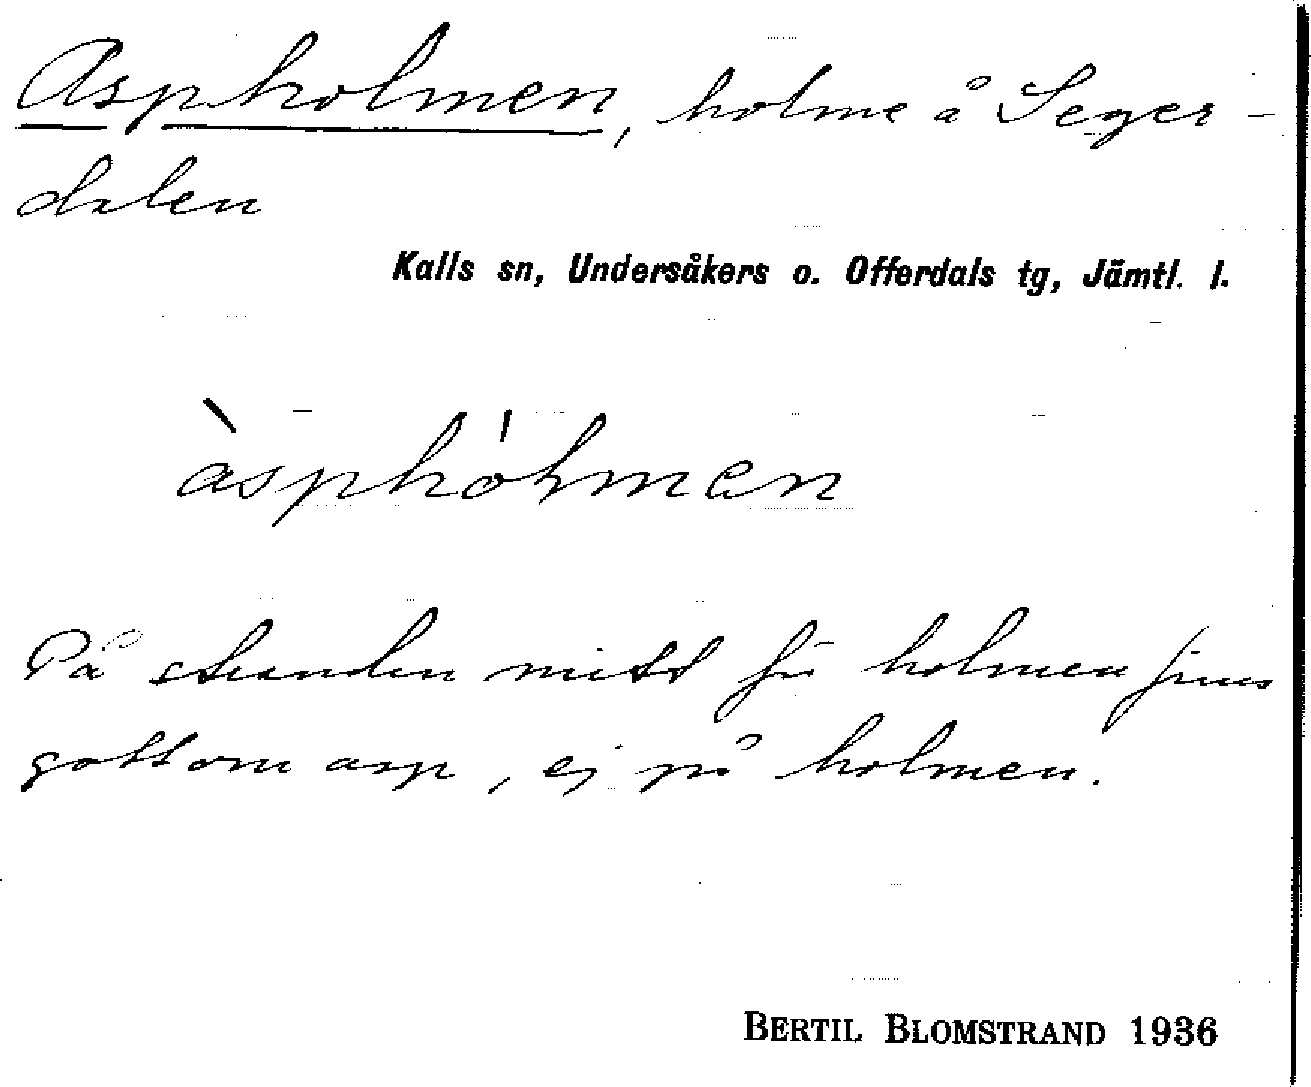 Aspholmen, holme å Seger-
dalen
Kalls sn, Undersåkers o. Offerdals tg, Jämtl. l.
àsphólmen
På stranden mitt för holmen finns
gott om asp, ej på holmen.
BERTIL BLOMSTRAND 1936